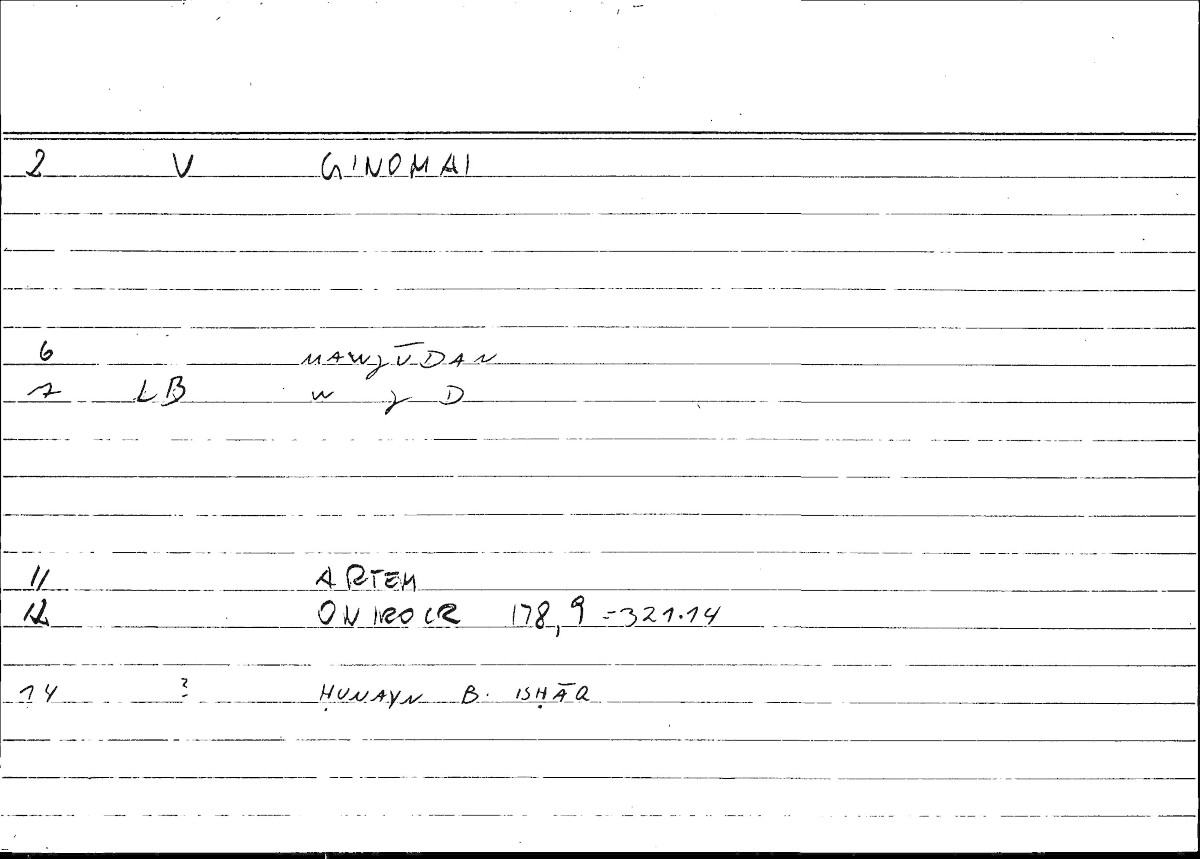 2 V GINOMAI
6 MAWJŪDAN
7 LB W J D
11 ARTEM
12 ONIROCR 178,9 = 321.14
14 ? ḤUNAYN B. ISḤĀQ